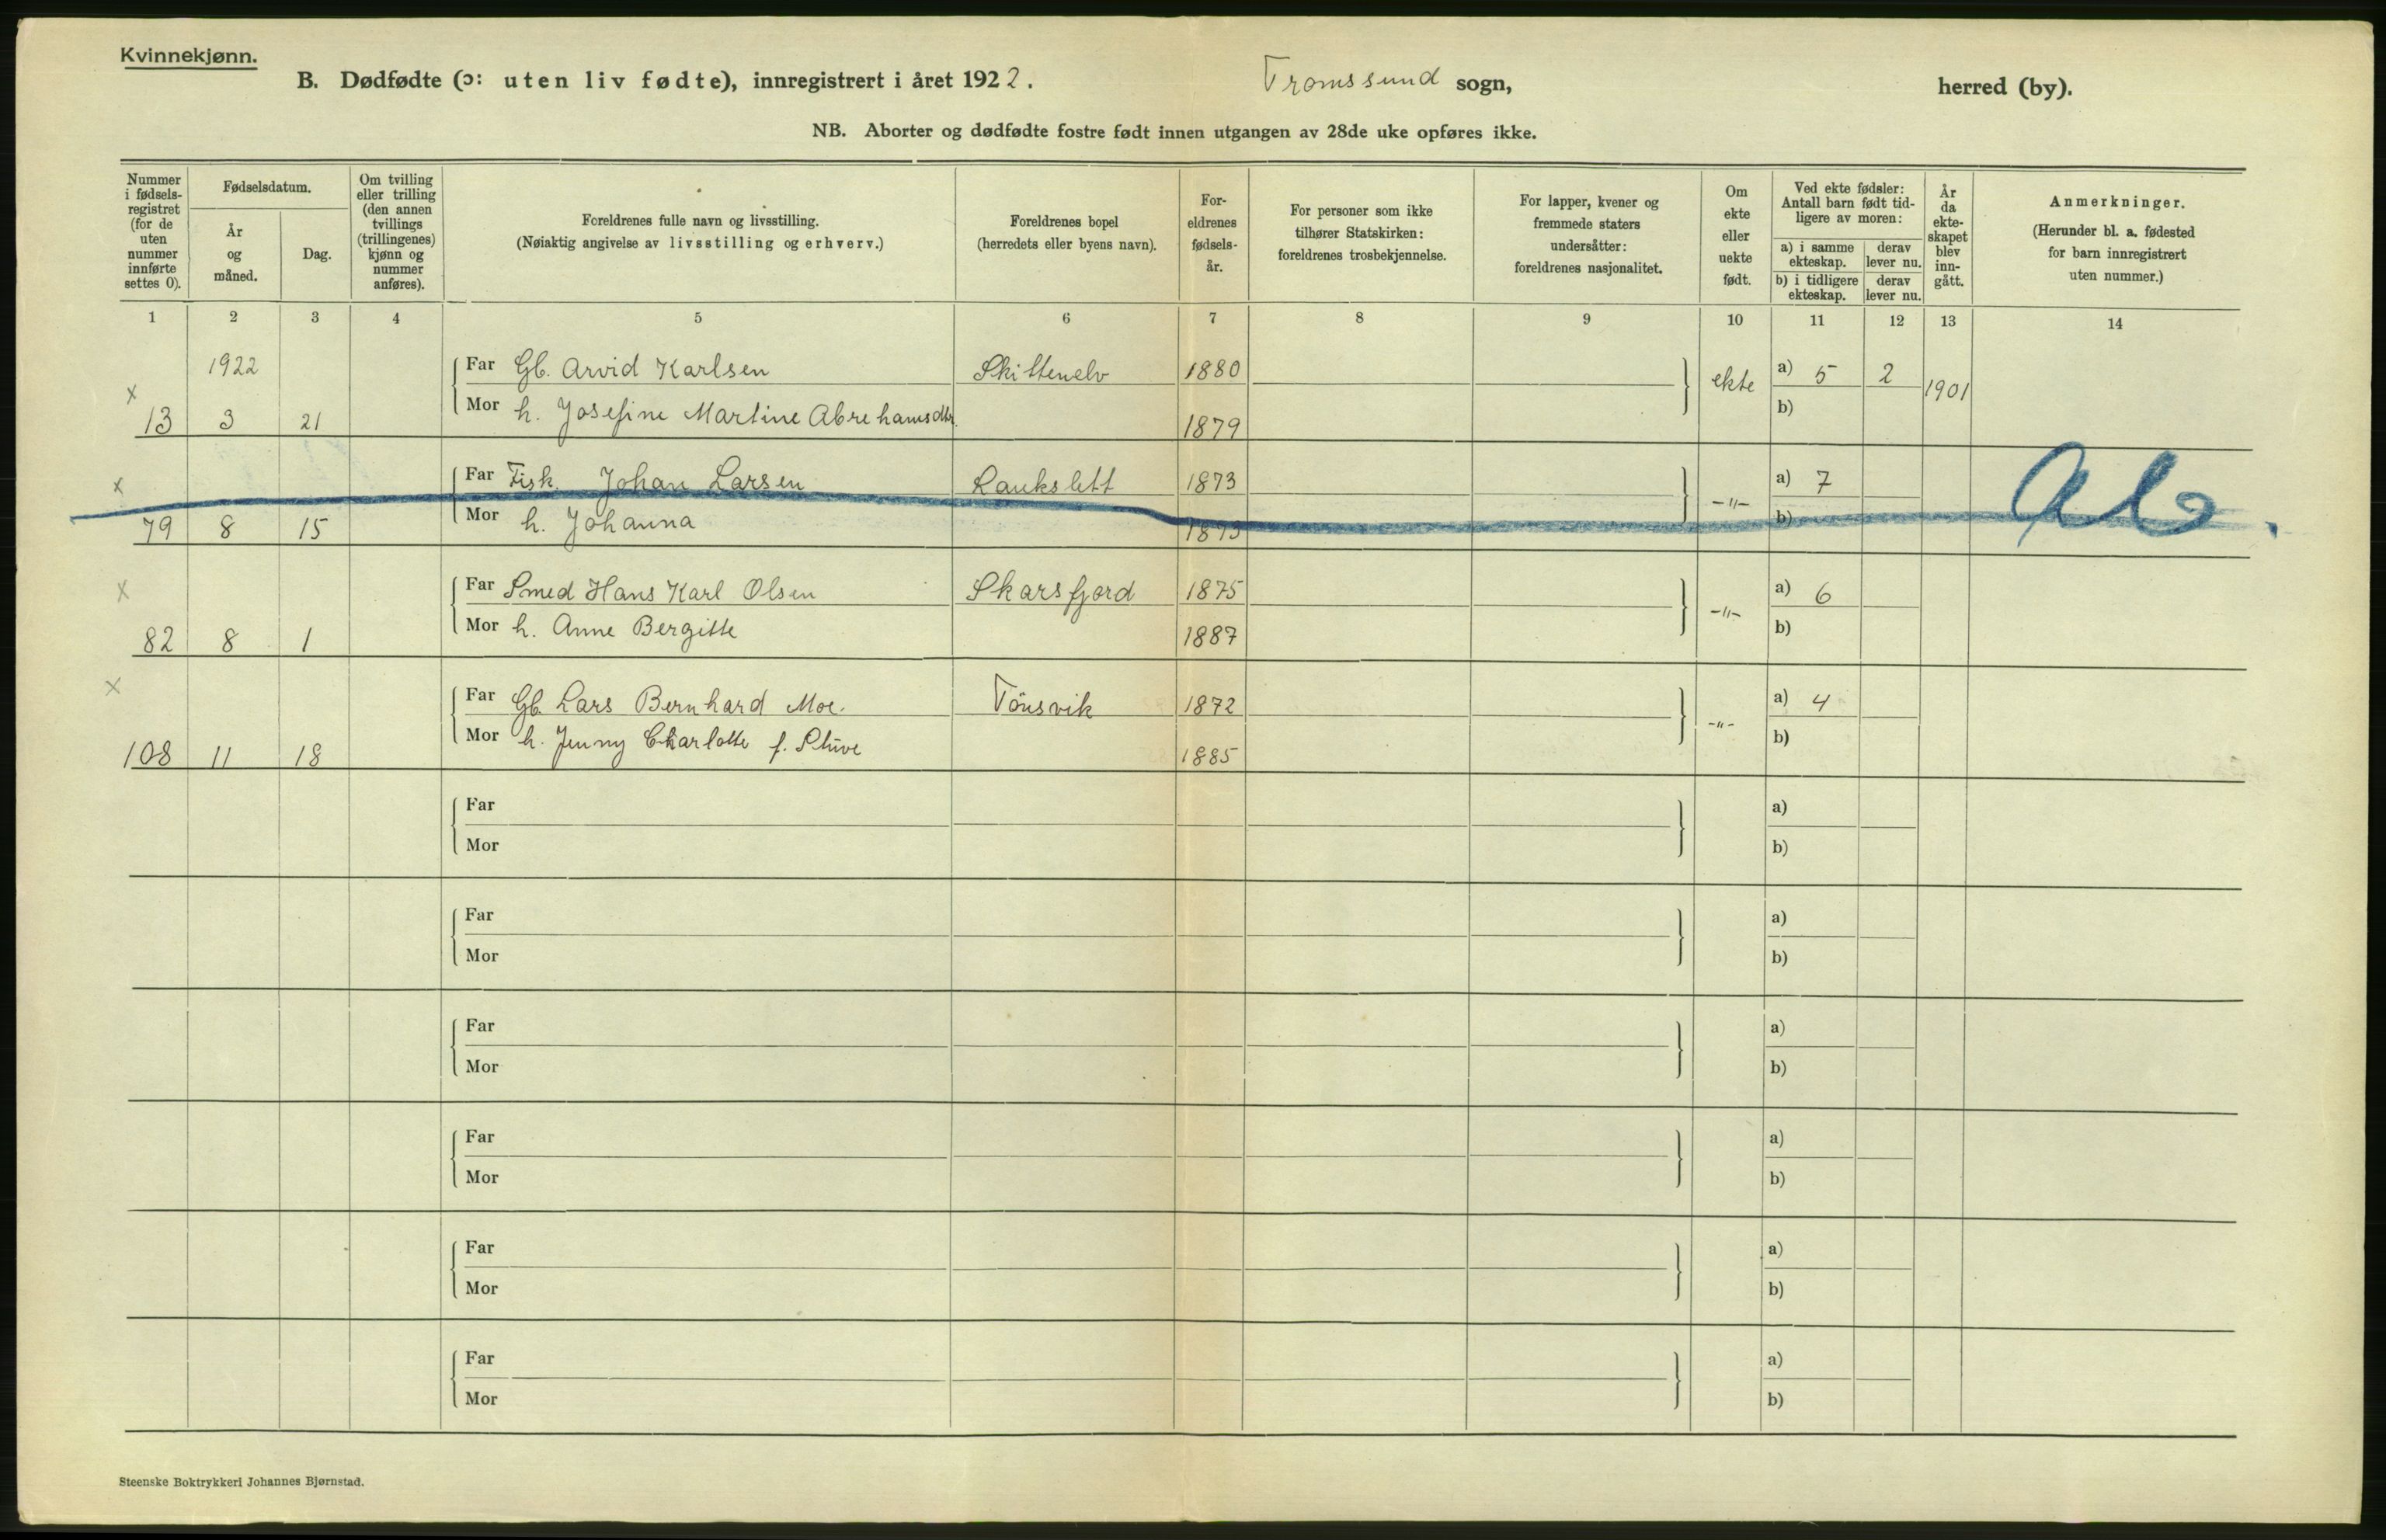 Kvinnekjønn.
B. Dødfødte (ɔ: uten liv fødte), innregistrert i året 1922. Tromssund sogn, herred (by).
NB. Aborter og dødfødte fostre født innen utgangen av 28de uke opføres ikke.
Nummer i fødsels-registret (for de uten nummer innførte settes 0).
Fødselsdatum.
År og måned.
Dag.
Om tvilling eller trilling (den annen tvillings (trillingenes) kjønn og nummer anføres).
Foreldrenes fulle navn og livsstilling.
(Nøiaktig angivelse av livsstilling og erhverv.)
Foreldrenes bopel
(herredets eller byens navn).
For-eldrenes fødsels-år.
For personer som ikke tilhører Statskirken: foreldrenes trosbekjennelse.
For lapper, kvener og fremmede staters undersåtter: foreldrenes nasjonalitet.
Om ekte eller uekte født.
Ved ekte fødsler: Antall barn født tid-ligere av moren:
a) i samme ekteskap.
derav lever nu.
b) i tidligere ekteskap.
derav lever nu.
År da ekte-skapet blev inn-gått.
Anmerkninger.
(Herunder bl. a. fødested for barn innregistrert uten nummer.)
1 2 3 4 5 6 7 8 9 10 11 12 13 14
1922 Far Gb. Arvid Karlsen Skittenelv 1880 ekte a) 5 2 1901
x 13 3 21 Mor h. Josefine Martine Abrehamsdtr. 1879 b)
x Far Fisk. Johan Larsen Laukslett 1873 -"- a) 7 Ab.
79 8 15 Mor h. Johanna b)
x Far Smed Hans Karl Olsen Skarsfjord 1875 -"- a) 6
82 8 1 Mor h. Anne Bergitte 1887 b)
x Far Gb. Lars Bernhard Moe. Tönsvik 1872 -"- a) 4
108 11 18 Mor h. Jenny Charlotte f. 1885 b)
Far a)
Mor b)
Far a)
Mor b)
Far a)
Mor b)
Far a)
Mor b)
Far a)
Mor b)
Far a)
Mor b)
Steenske Boktrykkeri Johannes Bjørnstad.